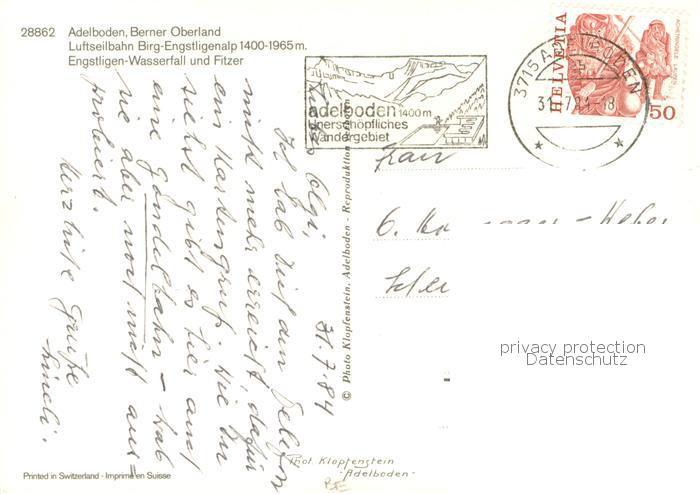 28862 Adelboden, Berner Oberland
Luftseilbahn Birg-Engstligenalp 1400-1965 m.
Engstligen-Wasserfall und Fitzer
adelboden 1400 m
Unerschöpfliches
Wandergebiet
HELVETIA
50
3715 ADELBODEN
31.-7.84-18
31.7.84
Olgi,
Ich hab Dich am Telefon
nicht mehr erreicht, dafür
ein Kartengruss. Wie Du
siehst gibt es hier auch
eine Gondelbahn - hab
sie aber noch nicht aus=
probiert.
Herzliche Grüsse
© Photo Klopfenstein, Adelboden - Reproduktion verboten
Frau
G.
privacy protection
Datenschutz
Phot. Klopfenstein
-Adelboden-
Printed in Switzerland - Imprimé en Suisse